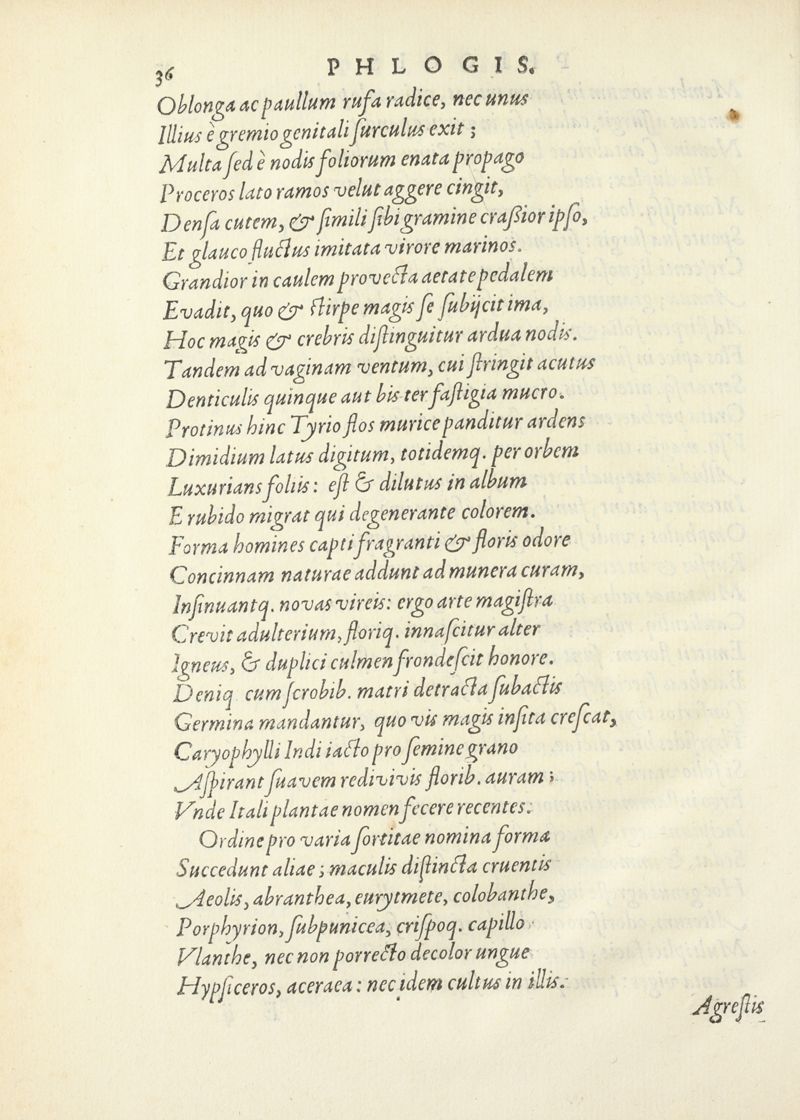 36
PHLOGIS.
Oblonga ac paullum rufa radice, nec unus
Illius è gremio genitali ſurculus exit;
Multa ſed è nodis foliorum enata propago
Proceros lato ramos velut aggere cingit,
Denſa cutem, & ſimili ſibi gramine craßior ipſo,
Et glauco fluctus imitata virore marinos.
Grandior in caulem provecta aetate pedalem
Evadit, quo & ſtirpe magis ſe ſubijcit ima,
Hoc magis & crebris diſtinguitur ardua nodis.
Tandem ad vaginam ventum, cui ſtringit acutus
Denticulis quinque aut bis ter faſtigia mucro.
Protinus hinc Tyrio flos murice panditur ardens
Dimidium latus digitum, totidemq. per orbem
Luxurians foliis: eſt & dilutus in album
E rubido migrat qui degenerante colorem.
Forma homines capti fragranti & floris odore
Concinnam naturae addunt ad munera curam,
Inſinuantq. novas vireis: ergo arte magiſtra
Crevit adulterium, floriq. innaſcitur alter
Igneus, & duplici culmen frondeſcit honore.
Deniq cum ſcrobib. matri detracta ſubactis
Germina mandantur, quo vis magis inſita creſcat,
Caryophylli Indi iacto pro ſemine grano
Aſpirant ſuavem redivivis florib. auram;
Vnde Itali plantae nomen fecere recentes.
Ordine pro varia ſortitae nomina forma
Succedunt aliae; maculis diſtincta cruentis
Aeolis, abranthea, eurytmete, colobanthe,
Porphyrion, ſubpunicea, criſpoq. capillo
Vlanthe, nec non porrecto decolor ungue
Hypſiceros, aceraea: nec idem cultus in illis.
Agreſtis